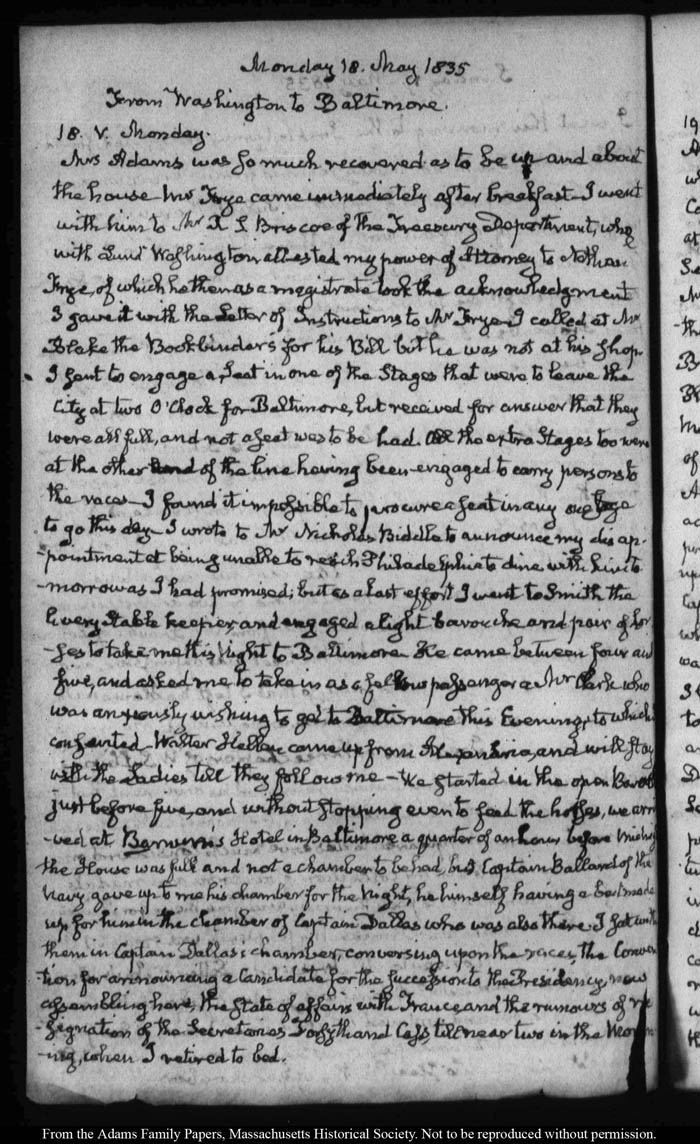 Monday 18. May 1835
From Washington to Baltimore.
18. V. Monday.
Mrs Adams was so much recovered as to be up and about
the house Mr Frye came immediately after breakfast I went
with him to Mr R S Briscoe of the Treasury Department, who
with Lund Washington attested my power of Attorney to Nathan
Frye, of which he then as a magistrate took the acknowledgment
I gave it with the Letter of Instructions to Mr Frye I called at Mr
Blake the Bookbinder's for his Bill but he was not at his shop
I sent to engage a Seat in one of the Stages that were to leave the
City at two O'Clock for Baltimore, but received for answer that they
were all full, and not a seat was to be had. All the extra Stages too were
at the other end of the line having been engaged to carry persons to
the races I found it impossible to procure a seat in any stage
to go this day I wrote to Mr Nicholas Biddle to announce my disap-
-pointment at being unable to reach Philadelphia to dine with him to
-morrow as I had promised; but as a last effort I went to Smith the
livery Stable keeper, and engaged a light barouche and pair of hor
-ses to take me this Night to Baltimore He came between four and
five, and asked me to take in as a fellow passenger a Mr Clark who
was anxiously wishing to get to Baltimore this Evening, to which
consented Walter Hellen came up from Alexandria, and will stay
with the Ladies till they follow me – We started in the open Barou
just before five, and without stopping even to feed the horses, we arri
-ved at Barnum's Hotel in Baltimore a quarter of an hour before midnig
the House was full and not a chamber to be had, but Captain Ballard of the
Navy gave up to me his chamber for the Night, he himself having a bed made
up for him in the chamber of Captain Dallas who was also there I sat with
them in Captain Dallas's chamber, conversing upon the races, the Conven
-tion for announcing a Candidate for the succession to the Presidency, now
assembling here, the State of affairs with France and the rumours of re
-signation of the Secretaries Forsyth and Cass till near two in the Morn
-ing, when I retired to bed.
From the Adams Family Papers, Massachusetts Historical Society. Not to be reproduced without permission.